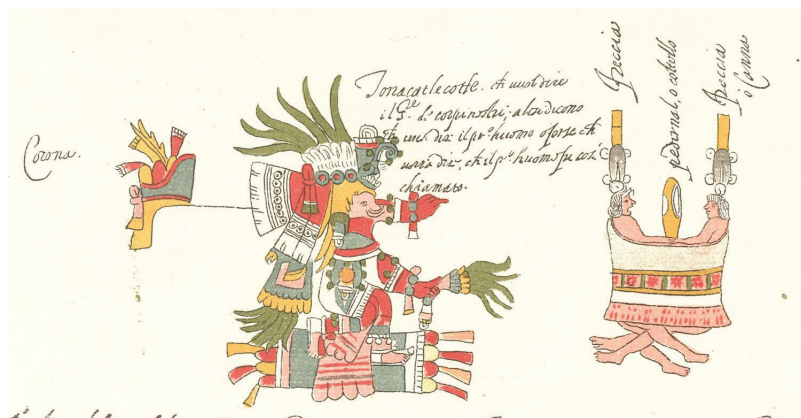 Corona.
Tonacatlecotle. che vuol dire
il S.re di corpi nostri; altri dicono
che vuol dir il pr.o huomo o forse che
vuol dir, che il pr.o huomo fu così
chiamato.
Freccia
pedernal, o coltello
Freccia
ò Canna